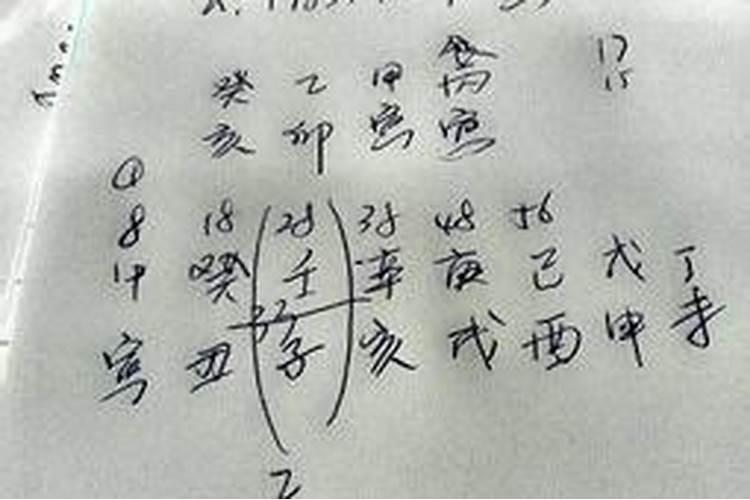 癸 乙 甲 丙 17
亥 卯 寅 寅 15
8 18 28 38 48 56
甲 癸 壬 辛 庚 己 戊 丁
33
寅 丑 子 亥 戌 酉 申 未
乙